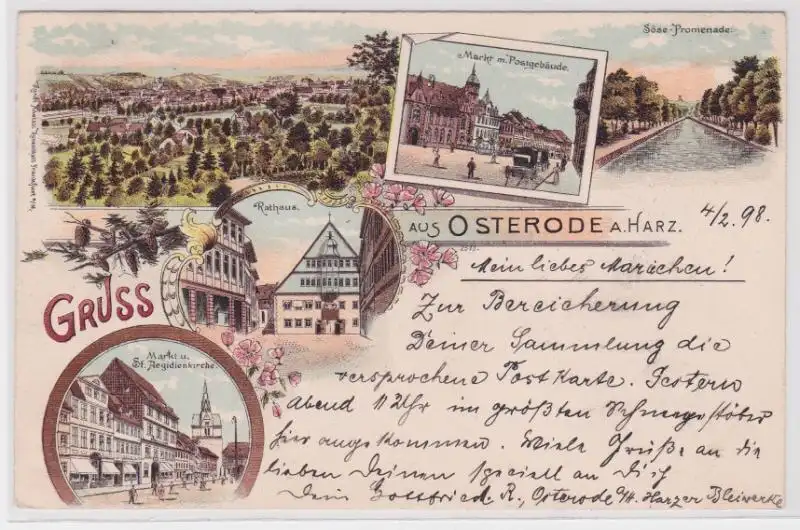 Söse-Promenade.
Markt m. Postgebäude.
Rathaus.
AUS OSTERODE A. HARZ.
GRUSS
Markt u.
St. Aegidienkirche.
4/2. 98.
Mein liebes Mariechen!
Zur Bereicherung
Deiner Sammlung die
versprochene Postkarte. Gestern
Abend 11 Uhr im größten Schneegestöber
hier angekommen. Viele Grüße an die
lieben Deinen speciell an Dich
Dein Gottfried R., Osterode a/H. Harzer Bleiwerke